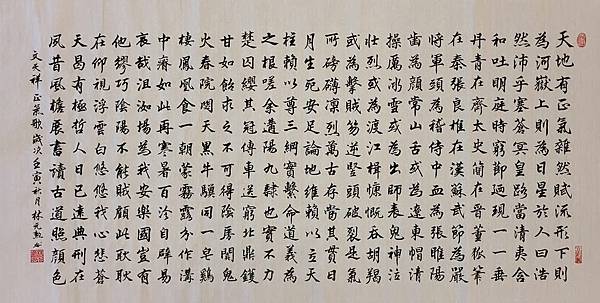 天地有正氣雜然賦流形下則
為河嶽上則為日星於人曰浩
然沛乎塞蒼冥皇路當清夷含
和吐明庭時窮節迺現一一垂
丹青在齊太史簡在晉董狐筆
在秦張良椎在漢蘇武節為嚴
將軍頭為嵇侍中血為張睢陽
齒為顏常山舌或為遼東帽清
操厲冰雪或為出師表鬼神泣
壯烈或為渡江楫慷慨吞胡羯
或為擊賊笏逆豎頭破裂是氣
所磅礡凜烈萬古存當其貫日
月生死安足論地維賴以立天
柱賴以尊三綱實繫命道義為
之根嗟余遘陽九隸也實不力
楚囚纓其冠傳車送窮北鼎鑊
甘如飴求之不可得陰房闃鬼
火春院閟天黑牛驥同一皂雞
棲鳳凰食一朝蒙霧露分作溝
中瘠如此再寒暑百沴自辟易
哀哉沮洳場為我安樂國豈有
他繆巧陰陽不能賊顧此耿耿
在仰視浮雲白悠悠我心悲蒼
天曷有極哲人日已遠典刑在
夙昔風檐展書讀古道照顏色
文天祥正氣歌歲次壬寅秋月林